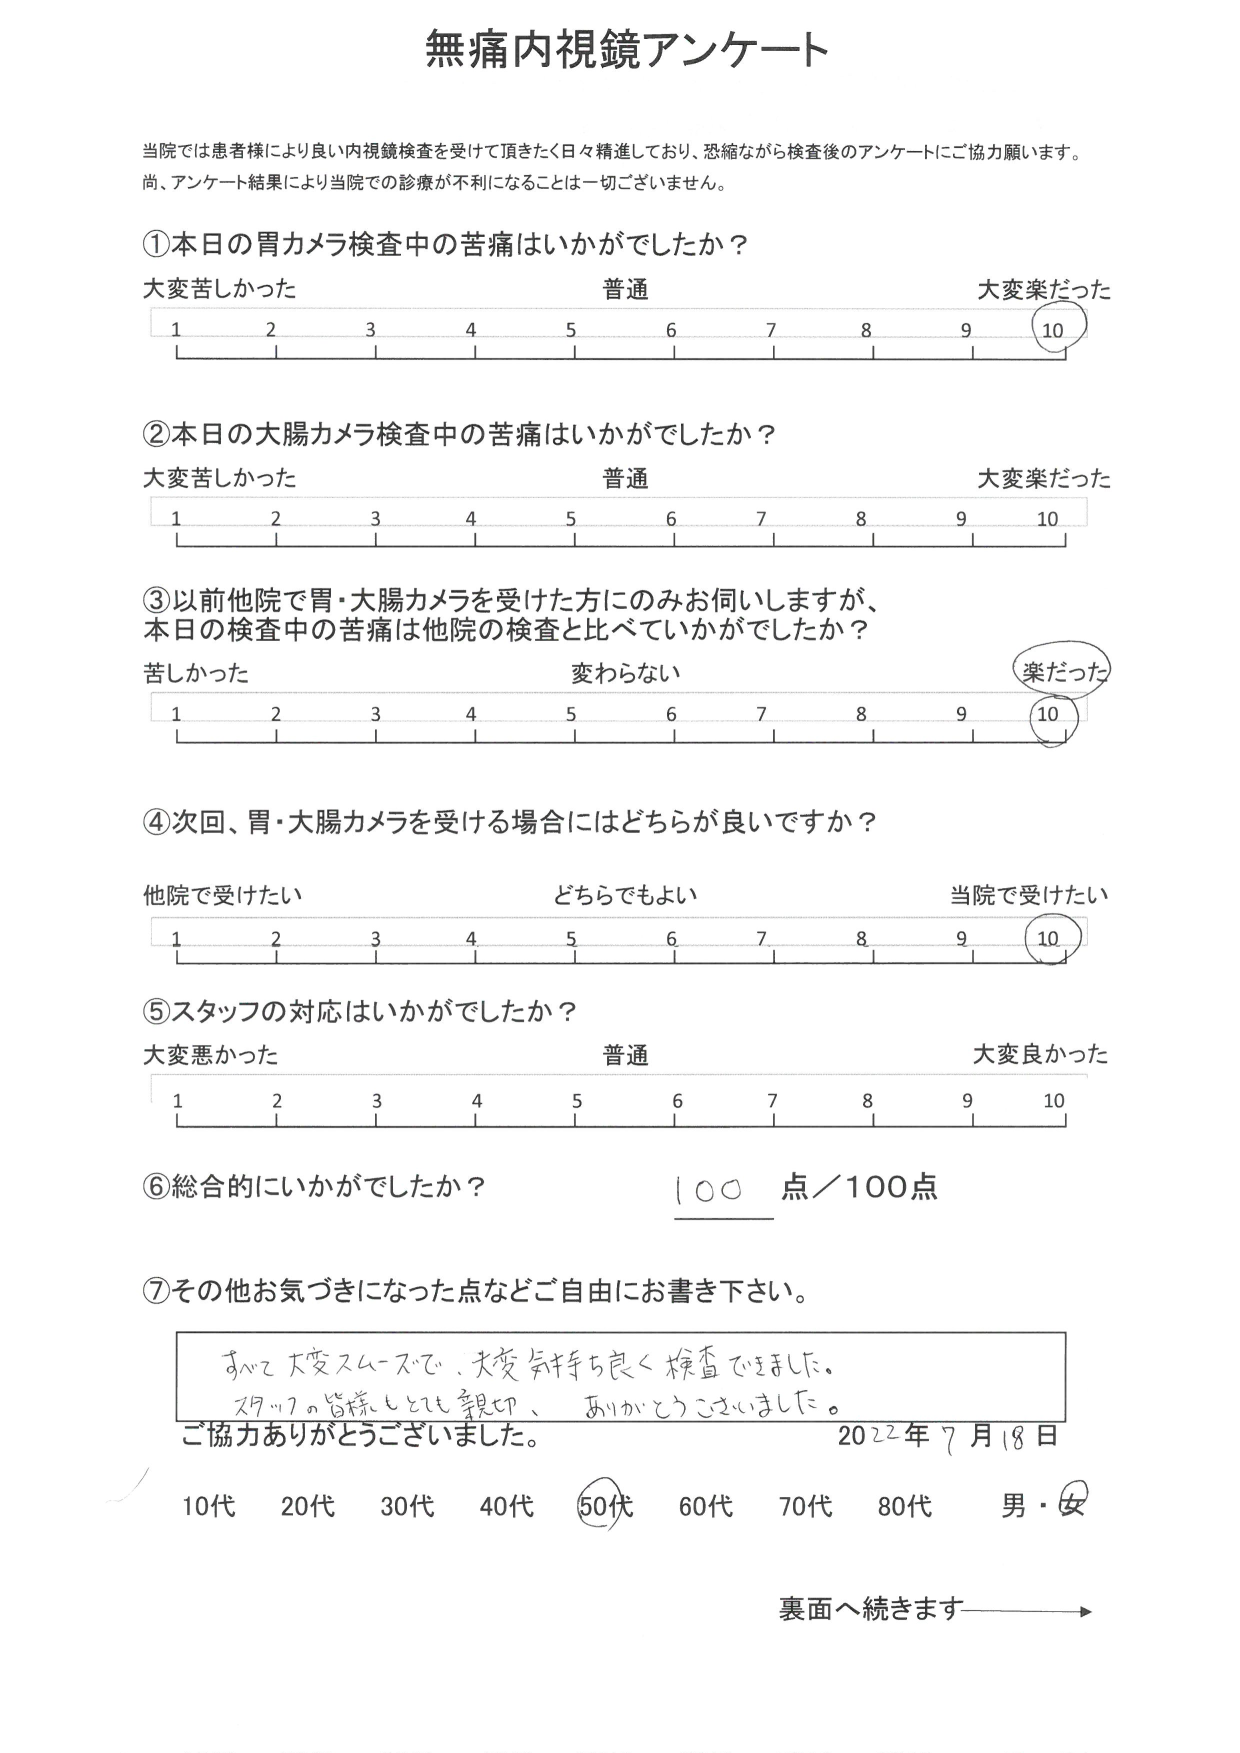 無痛内視鏡アンケート
当院では患者様により良い内視鏡検査を受けて頂きたく日々精進しており、恐縮ながら検査後のアンケートにご協力願います。
尚、アンケート結果により当院での診療が不利になることは一切ございません。
①本日の胃カメラ検査中の苦痛はいかがでしたか？
大変苦しかった 普通 大変楽だった
1 2 3 4 5 6 7 8 9 10
②本日の大腸カメラ検査中の苦痛はいかがでしたか？
大変苦しかった 普通 大変楽だった
1 2 3 4 5 6 7 8 9 10
③以前他院で胃・大腸カメラを受けた方にのみお伺いしますが、
本日の検査中の苦痛は他院の検査と比べていかがでしたか？
苦しかった 変わらない 楽だった
1 2 3 4 5 6 7 8 9 10
④次回、胃・大腸カメラを受ける場合にはどちらが良いですか？
他院で受けたい どちらでもよい 当院で受けたい
1 2 3 4 5 6 7 8 9 10
⑤スタッフの対応はいかがでしたか？
大変悪かった 普通 大変良かった
1 2 3 4 5 6 7 8 9 10
⑥総合的にいかがでしたか？ 100 点／100点
⑦その他お気づきになった点などご自由にお書き下さい。
すべて大変スムーズで、大変気持ち良く検査できました。
スタッフの皆様もとても親切、 ありがとうございました。
ご協力ありがとうございました。 2022年 7月18日
10代 20代 30代 40代 50代 60代 70代 80代 男・女
裏面へ続きます